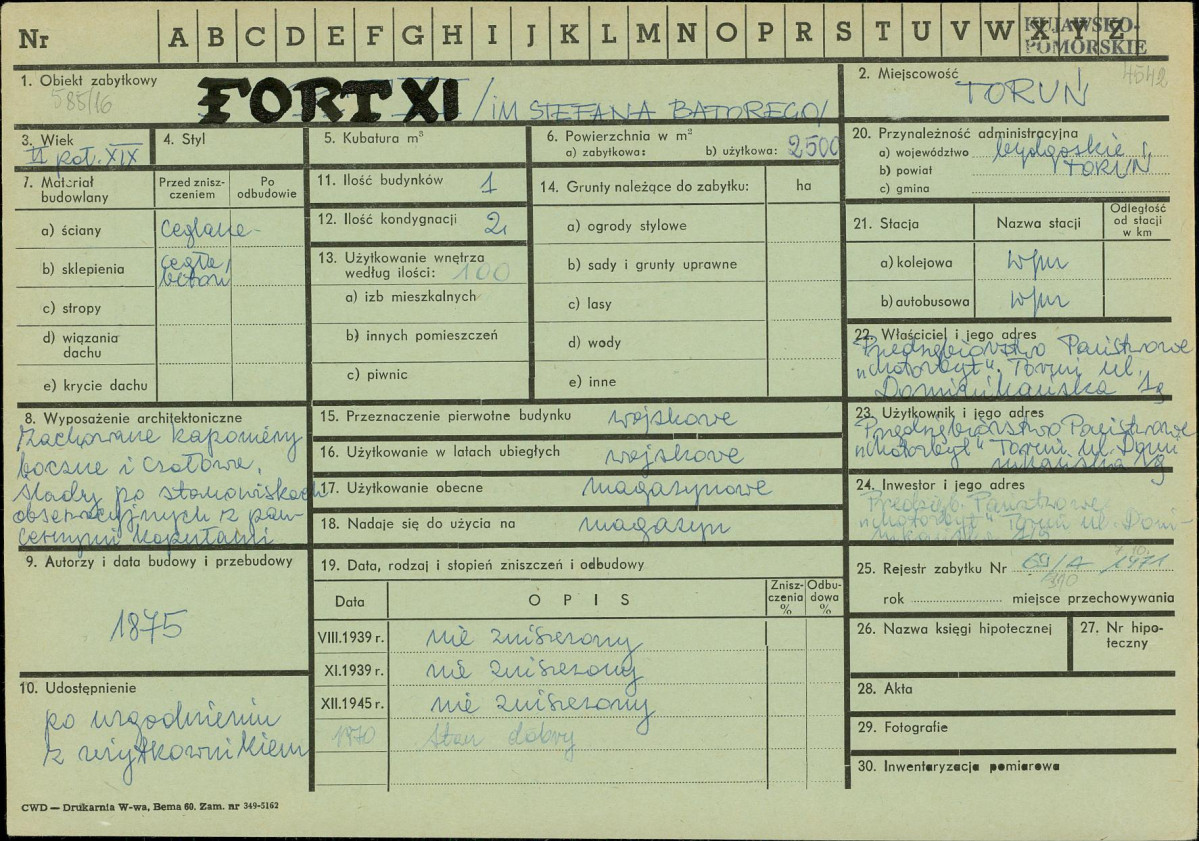 Nr A B C D E F G H I J K L M N O P R S T U V W X Y Z
KUJAWSKO-
POMORSKIE
1. Obiekt zabytkowy
585/16
FORT XI /IM STEFANA BATOREGO/
2. Miejscowość
4542
TORUŃ
3. Wiek
II poł. XIX
4. Styl
5. Kubatura m³
6. Powierzchnia w m²
a) zabytkowa: b) użytkowa: 2500
20. Przynależność administracyjna
a) województwo bydgoskie
b) powiat TORUŃ
c) gmina
7. Materiał
budowlany
Przed znisz-
czeniem
Po
odbudowie
a) ściany ceglane
b) sklepienia cegła,
beton
c) stropy
d) wiązania
dachu
e) krycie dachu
11. Ilość budynków 1
12. Ilość kondygnacji 2
13. Użytkowanie wnętrza
według ilości: 100
a) izb mieszkalnych
b) innych pomieszczeń
c) piwnic
14. Grunty należące do zabytku: ha
a) ogrody stylowe
b) sady i grunty uprawne
c) lasy
d) wody
e) inne
21. Stacja Nazwa stacji
Odległość
od stacji
w km
a) kolejowa w/m
b) autobusowa w/m
22. Właściciel i jego adres
Przedsiębiorstwo Państwowe
"Motozbyt" Toruń ul.
Dominikańska 1g
8. Wyposażenie architektoniczne
Zachowane kaponiery
boczne i czołowe,
ślady po stanowiskach
obserwacyjnych z pan-
cernymi kopułami
15. Przeznaczenie pierwotne budynku wojskowe
16. Użytkowanie w latach ubiegłych wojskowe
17. Użytkowanie obecne magazynowe
18. Nadaje się do użycia na magazyn
23. Użytkownik i jego adres
Przedsiębiorstwo Państwowe
"Motozbyt" Toruń ul. Domi
nikańska 1g
24. Inwestor i jego adres
Przedsięb. Państwowe
"Motozbyt" Toruń ul. Domi-
nikańska
9. Autorzy i data budowy i przebudowy
1875
19. Data, rodzaj i stopień zniszczeń i odbudowy
Data OPIS
Znisz-
czenia
%
Odbu-
dowa
%
VIII.1939 r. nie zniszczony
XI.1939 r. nie zniszczony
XII.1945 r. nie zniszczony
1970 stan dobry
25. Rejestr zabytku Nr 69/A 7.10. 1971
310
rok miejsce przechowywania
26. Nazwa księgi hipotecznej
27. Nr hipo-
teczny
10. Udostępnienie
po uzgodnieniu
z użytkownikiem
28. Akta
29. Fotografie
30. Inwentaryzacja pomiarowa
CWD — Drukarnia W-wa, Bema 60. Zam. nr 349-5162